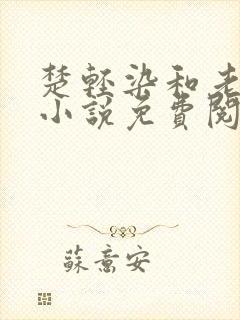 楚轻染和老
小説免費閱
蘇意安